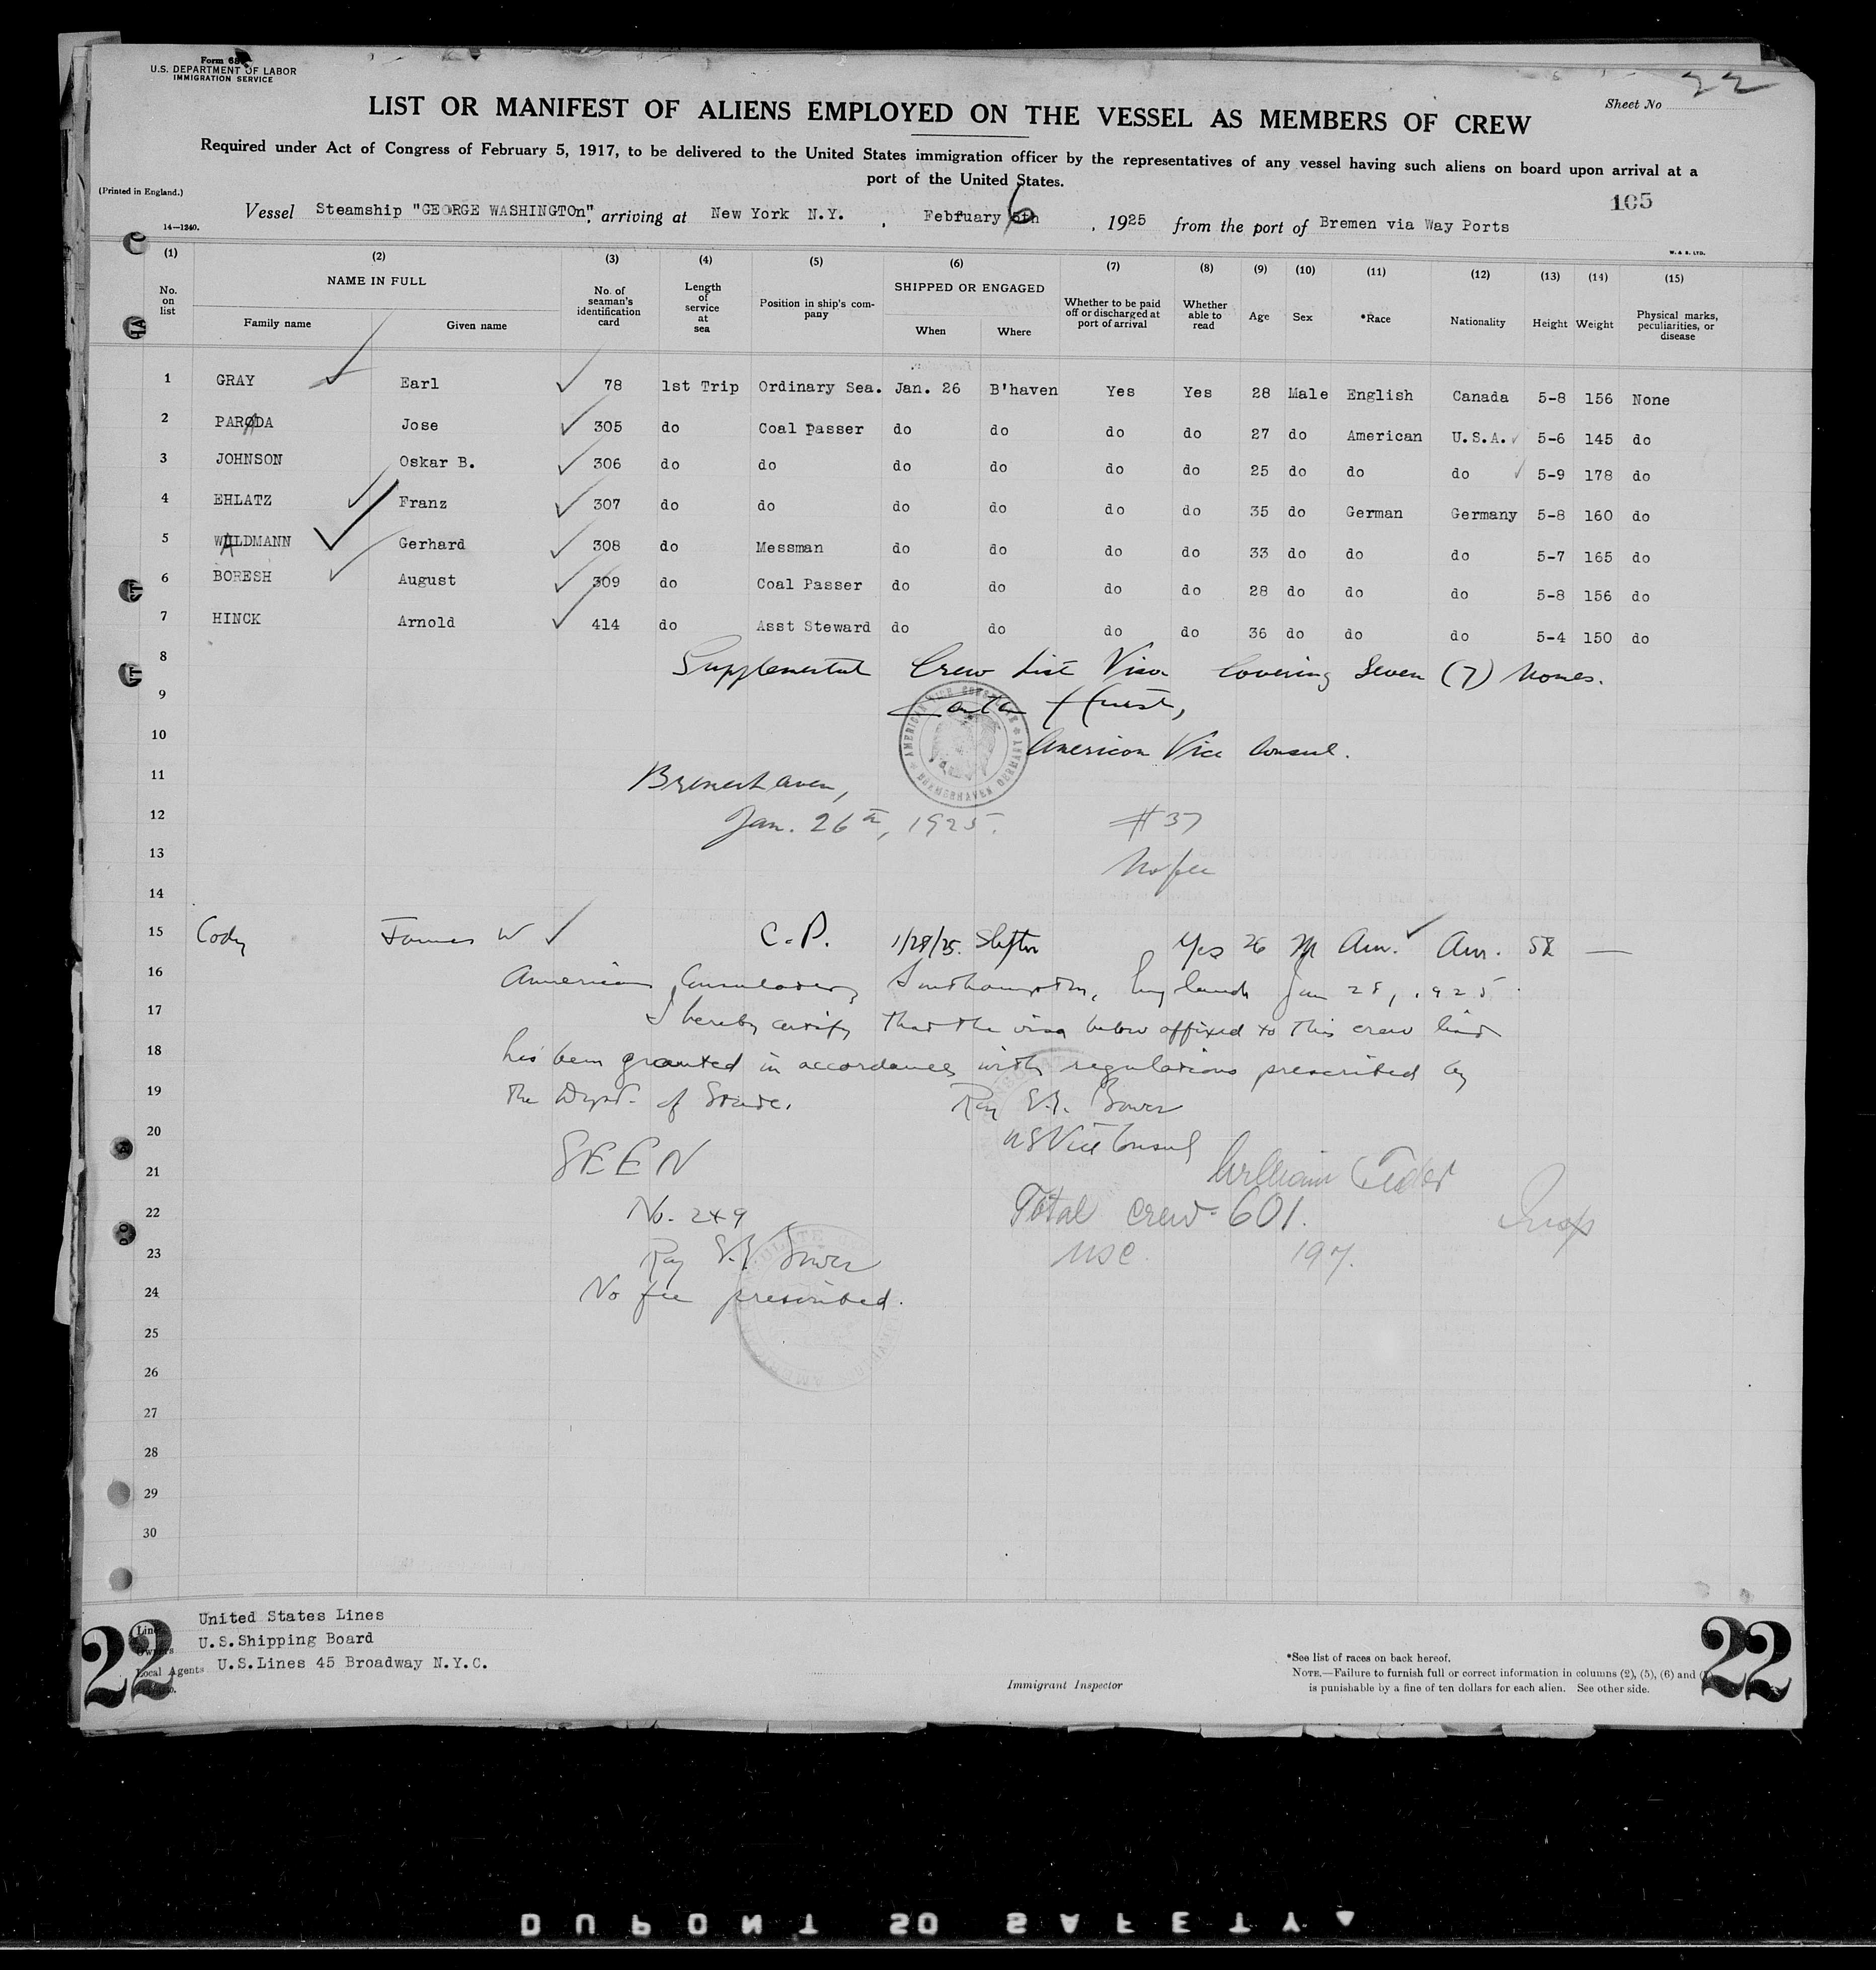 Form 68
U.S. DEPARTMENT OF LABOR
IMMIGRATION SERVICE
Sheet No 22
LIST OR MANIFEST OF ALIENS EMPLOYED ON THE VESSEL AS MEMBERS OF CREW
Required under Act of Congress of February 5, 1917, to be delivered to the United States immigration officer by the representatives of any vessel having such aliens on board upon arrival at a
port of the United States.
(Printed in England.)
105
Vessel Steamship "GEORGE WASHINGTOn", arriving at New York N.Y. , February 6 , 1925 from the port of Bremen via Way Ports
14—1240.
W. & S. LTD.
(1) (2) (3) (4) (5) (6) (7) (8) (9) (10) (11) (12) (13) (14) (15)
No. on list NAME IN FULL Family name Given name No. of seaman's identification card Length of service at sea Position in ship's company SHIPPED OR ENGAGED When Where Whether to be paid off or discharged at port of arrival Whether able to read Age Sex *Race Nationality Height Weight Physical marks, peculiarities, or disease
1 GRAY Earl 78 1st Trip Ordinary Sea. Jan. 26 B'haven Yes Yes 28 Male English Canada 5-8 156 None
2 PARADA Jose 305 do Coal Passer do do do do 27 do American U.S.A. 5-6 145 do
3 JOHNSON Oskar B. 306 do do do do do do 25 do do do 5-9 178 do
4 EHLATZ Franz 307 do do do do do do 35 do German Germany 5-8 160 do
5 WALDMANN Gerhard 308 do Messman do do do do 33 do do do 5-7 165 do
6 BORESH August 309 do Coal Passer do do do do 28 do do do 5-8 156 do
7 HINCK Arnold 414 do Asst Steward do do do do 36 do do do 5-4 150 do
8 Supplemental Crew List Visa Covering Seven (7) Names.
9
10 American Vice Consul.
11 Bremerhaven,
12 Jan. 26th, 1925. #37
13 No fee
14
15 Cody James W C.P. 1/28/25. Yes 26 M Am. Am. 58 —
16 American Consulate, Southampton, England Jan 28, 1925.
17 I hereby certify that the visa below affixed to this crew list
18 has been granted in accordance with regulations prescribed by
19 the Dept. of State. Ray
20 US Vice Consul
21 SEEN William
22 No. 249 Total crew - 601. Insp
23 Ray USC. 197.
24 No fee prescribed.
25
26
27
28
29
30
AMERICAN VICE CONSULATE BREMERHAVEN GERMANY
22
Line United States Lines
Owners U.S.Shipping Board
Local Agents U.S.Lines 45 Broadway N.Y.C.
Immigrant Inspector
*See list of races on back hereof.
NOTE.—Failure to furnish full or correct information in columns (2), (5), (6) and
is punishable by a fine of ten dollars for each alien. See other side.
22
DUPONT SO SAFETY